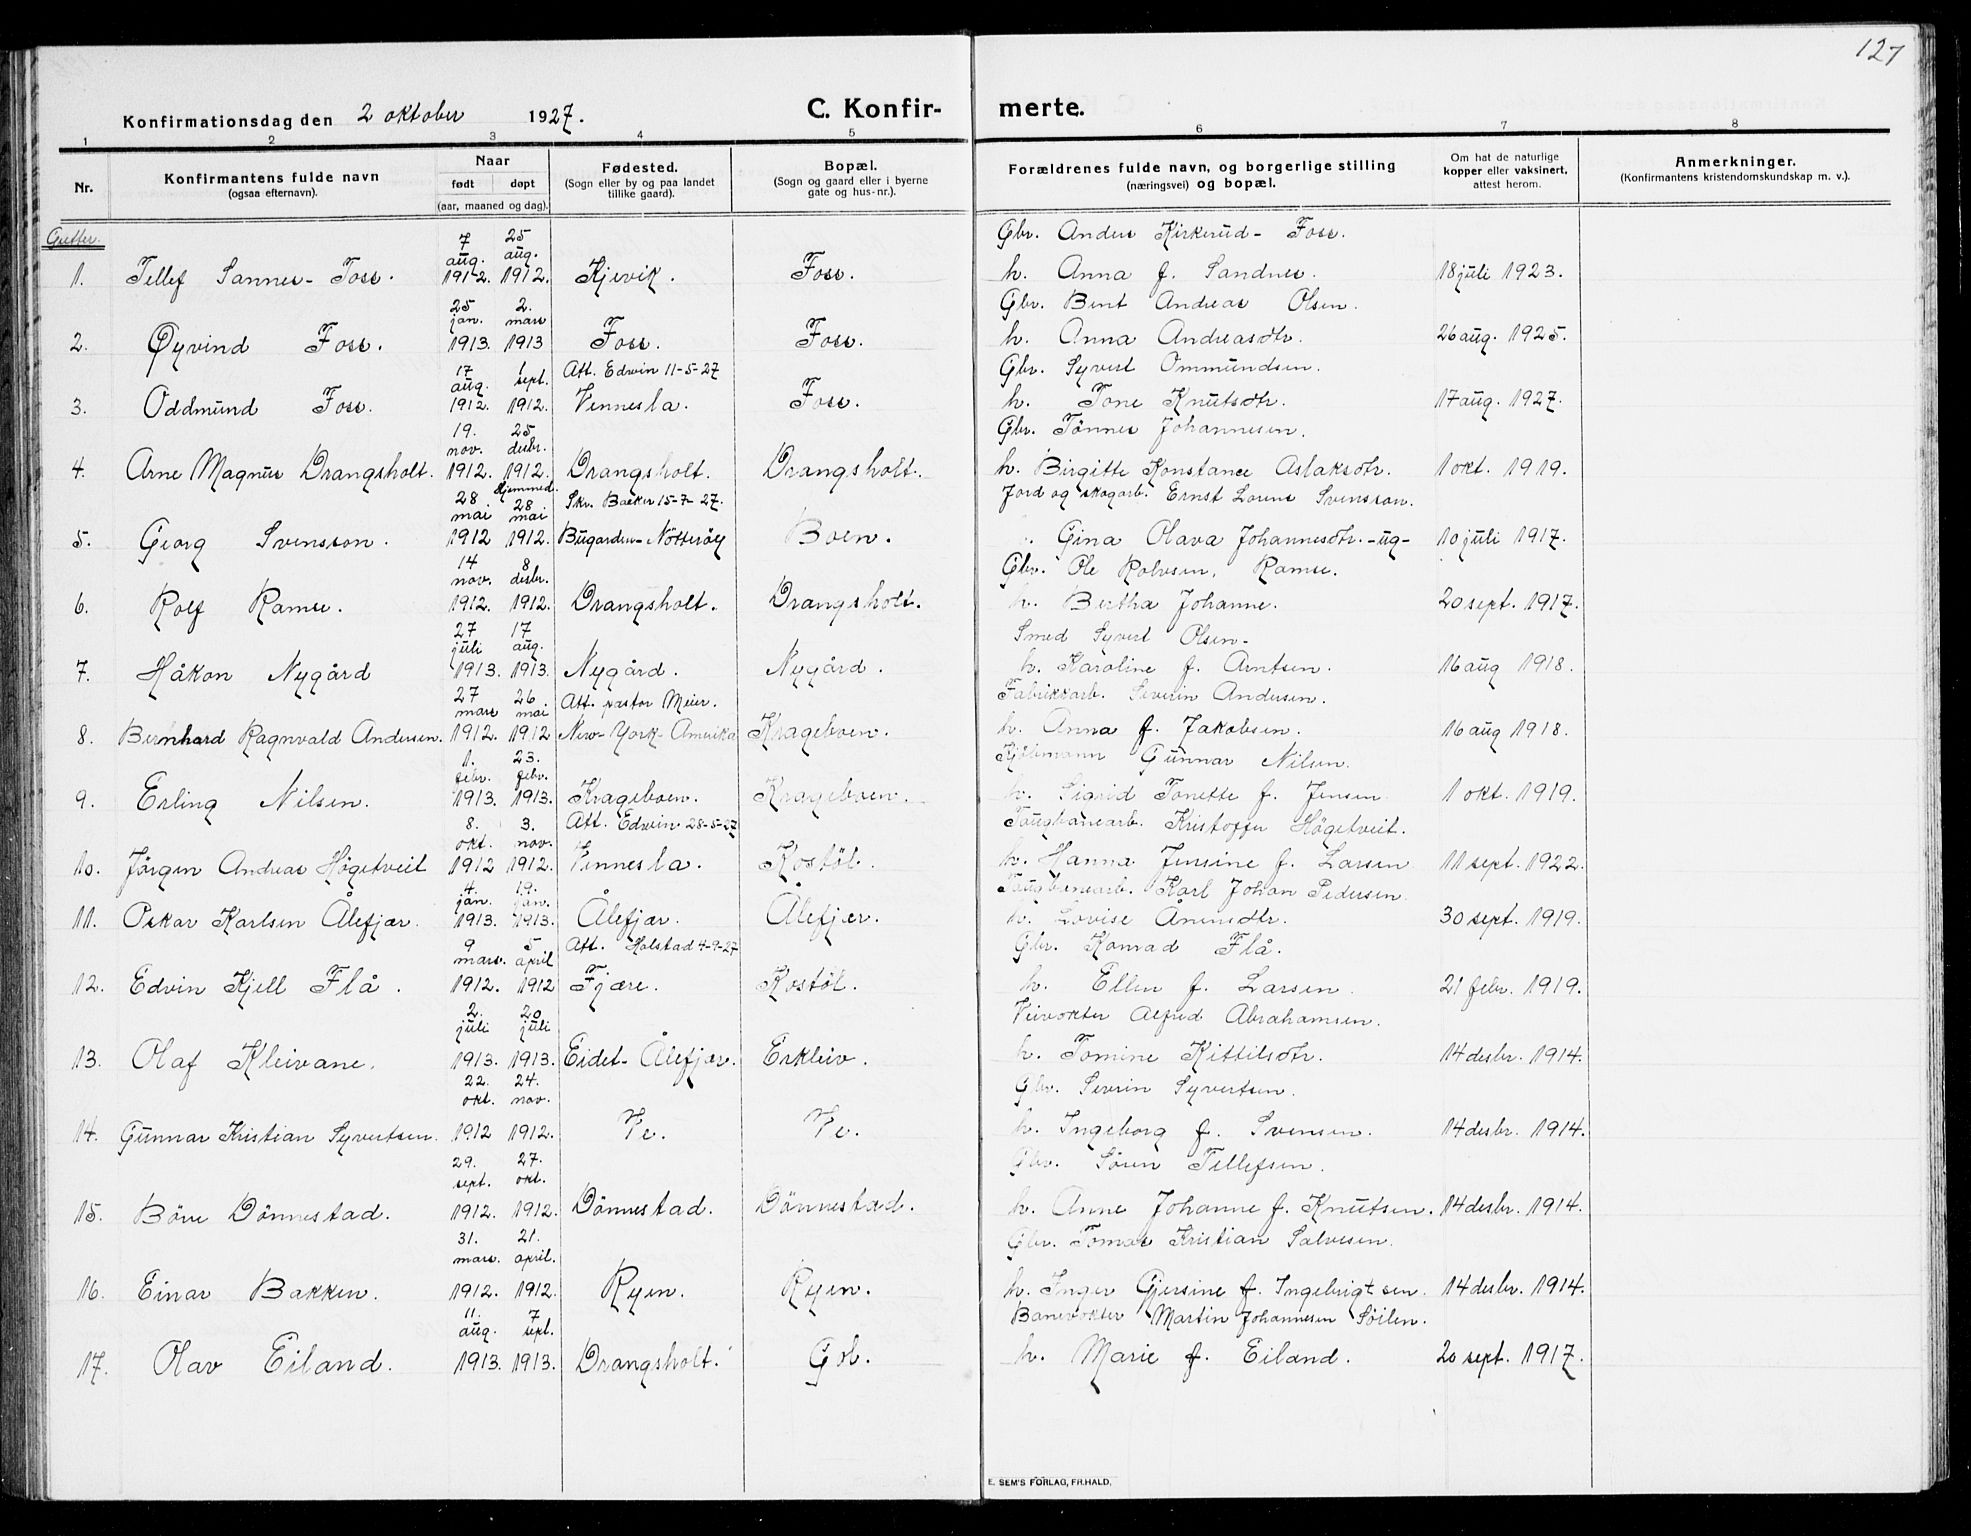 127
Konfirmationsdag den 2 oktober 1927.
C. Konfir-
merte.
1 2 3 4 5 6 7 8
Nr.
Konfirmantens fulde navn
(ogsaa efternavn).
Naar
født døpt
(aar, maaned og dag).
Fødested.
(Sogn eller by og paa landet
tillike gaard).
Bopæl.
(Sogn og gaard eller i byerne
gate og hus-nr.).
Forældrenes fulde navn, og borgerlige stilling
(næringsvei) og bopæl.
Om hat de naturlige
kopper eller vaksinert,
attest herom.
Anmerkninger.
(Konfirmantens kristendomskundskap m. v.).
Gutter.
7 25 Gbr. Anders Kirkerud- Foss.
aug. aug.
1. Tellef Sannes- Foss. 1912. 1912. Kjevik. Foss. h. Anna f. Sandnes. 18 juli 1923.
25 2. Gbr. Bent Andreas Olsen.
jan. mars
2. Øyvind Foss. 1913. 1913 Foss. Foss. h. Anna Andreasdtr. 26 aug. 1925.
17 1 Att. Edwin 11-5-27 Gbr. Syvert Ommundsen.
aug. sept.
3. Oddmund Foss. 1912. 1912. Vennesla. Foss. h. Tone Knutsdtr. 17 aug. 1927.
19. 25 Gbr. Tønnes Johannesen.
nov. desbr.
4. Arne Magnus Drangsholt. 1912. 1912. Drangsholt. Drangsholt. h. Birgitte Konstance Aslaksdtr. 1 okt. 1919.
28 Hjemmed. 28 Skr. Backer 15-7-27. Jord og skogarb. Ernst Lorens Svensson.
mai mai
5. Georg Svensson. 1912 1912. Bugarden- Nötteröy Boen. Gina Olava Johannesdtr. -ug- 10 juli 1917.
14 8 Gbr. Ole Rolvsen, Ramse.
nov. desbr.
6. Rolf Ramse. 1912. 1912. Drangsholt. Drangsholt. h. Bertha Johanne. 20 sept. 1917.
27 17 Smed Syvert Olsen-
juli aug.
7. Håkon Nygård 1913. 1913. Nygård. Nygård. h. Karoline f. Arntsen. 16 aug 1918.
27 26 Att. pastor Meier. Fabrikkarb. Severin Andersen.
mars mai
8. Bernhard Ragnvald Andersen. 1912. 1912 New- York- Amerika Krageboen. h. Anna f. Jakobsen. 16 aug 1918.
1. 23. Gunnar Nilsen.
febr. febr.
9. Erling Nilsen. 1913. 1913. Krageboen. Krageboen. h. Sigrid Tonette f. Jensen 1 okt. 1919.
8. 3. Att. Edwin 28-5-27 Taugbanearb. Kristoffer Högetveit.
okt. nov.
10. Jörgen Andreas Högetveit 1912 1912. Vennesla. Kostöl. h. Hanna Jensine f. Larsen 11 sept. 1922.
4. 19. Taugbanearb. Karl Johan Pedersen
jan. jan.
11. Oskar Karlsen Ålefjær. 1913. 1913. Ålefjær. Ålefjer. h. Lovise Ånensdtr. 30 sept. 1919.
9 5 Att. Holstad 4-9-27 Gbr. Konrad Flå.
mars. april
12. Edvin Kjell Flå. 1912. 1912 Fjære. Kostöl. h. Ellen f. Larsen. 21 febr. 1919.
2. 20 Veivokter Alfred Abrahamsen.
juli juli
13. Olaf Kleivane. 1913. 1913. Eidet- Ålefjær. Erkleiv. h. Tomine Kittilsdtr. 14 desbr. 1914.
22. 24. Gbr. Severin Syvertsen.
okt. nov.
14. Gunnar Kristian Syvertsen. 1912 1912. Ve. Ve. h. Ingeborg f. Svensen. 14 desbr. 1914.
29. 27. Gbr. Sören Tellefsen.
sept. okt.
15. Böre Dönnestad. 1912. 1912. Dönnestad. Dönnestad. h. Anne Johanne f. Knutsen. 14 desbr. 1914.
31. 21. Gbr. Tomas Kristian Salvesen.
mars. april.
16. Einar Bakken. 1912. 1912. Ryen. Ryen. h. Inger Gjersine f. Ingebrigtsen. 14 desbr. 1914.
11. 7 Banevokter Martin Johannesen Söilen.
aug. sept.
17. Olav Eiland. 1913. 1913. Drangsholt. Gob. h. Marie f. Eiland. 20 sept. 1917.
E. SEM'S FORLAG, FR.HALD.